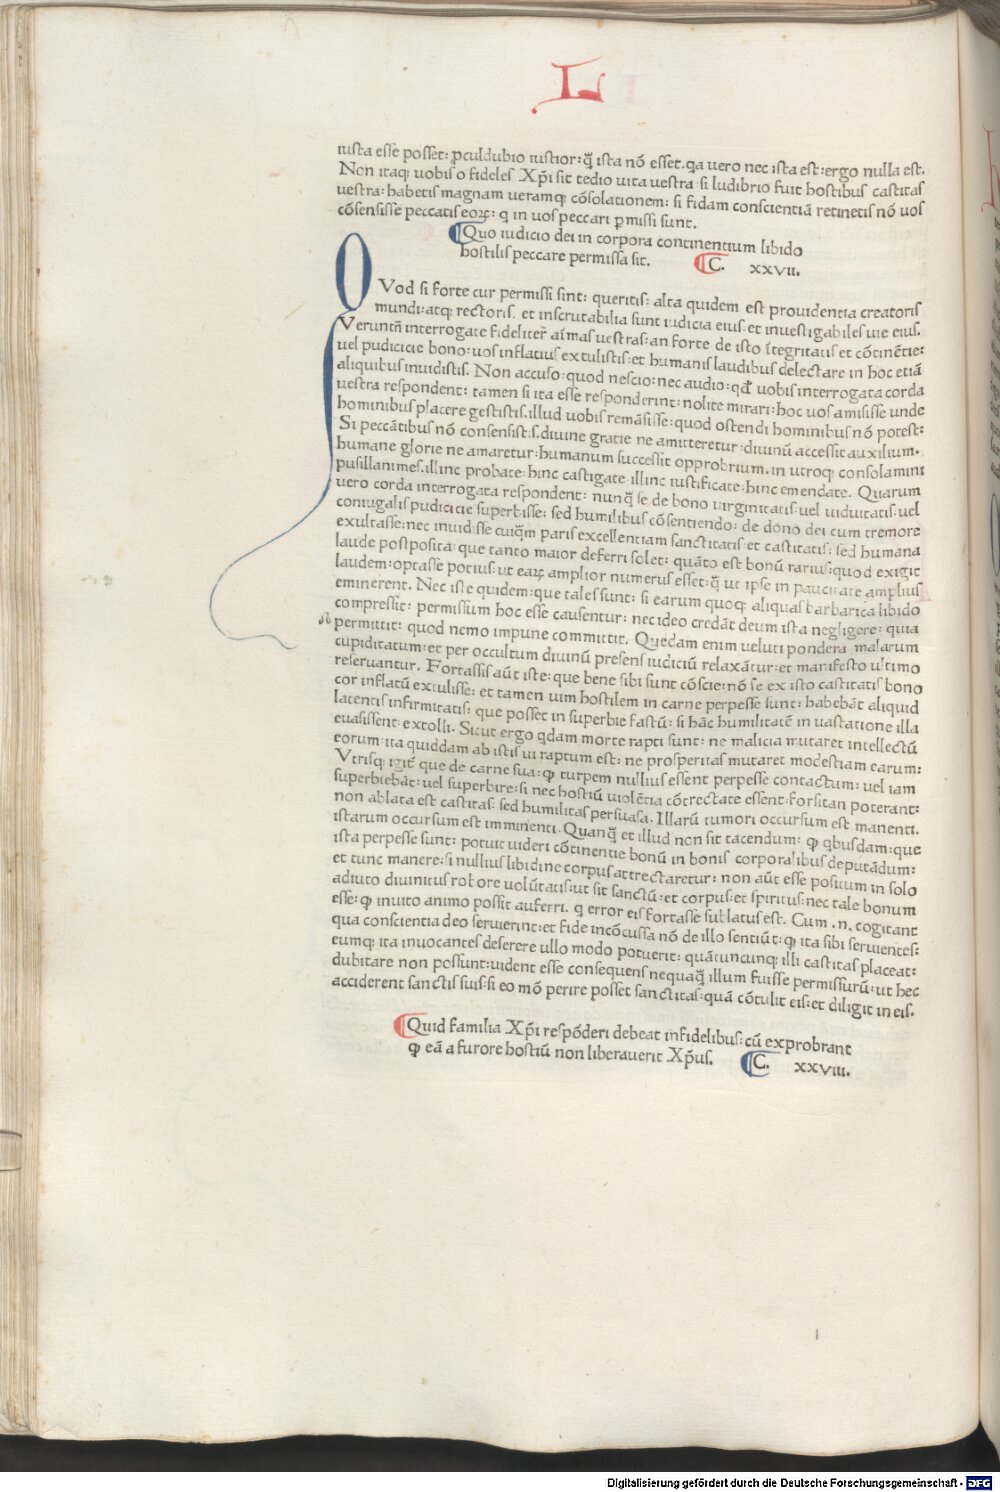 L
iusta esse posset: ꝓculdubio iustior: q̃ ista nõ esset. qa uero nec ista est: ergo nulla est.
Non itaq; uobis o fideles Xp̃i sit tedio uita uestra si ludibrio fuit hostibus castitas
uestra: habetis magnam ueramq; cõsolationem: si fidam conscientiã retinetis nõ uos
cõsensisse peccatis eoꝝ: q in uos peccari ꝑmissi sunt.
Quo iudicio dei in corpora continentium libido
hostilis peccare permissa sit. C. xxvii.
QVod si forte cur permissi sint: queritis: alta quidem est prouidentia creatoris
mundi: atq; rectoris. et inscrutabilia sunt iudicia eius. et inuestigabiles uie eius.
Veruntñ interrogate fideliter aĩmas uestras: an forte de isto ĩtegritatis et cõtinẽtie:
uel pudicicie bono: uos inflatius extulistis: et humanis laudibus delectate in hoc etiã
aliquibus inuidistis. Non accuso: quod nescio: nec audio: qđ uobis interrogata corda
uestra respondent: tamen si ita esse responderint: nolite mirari: hoc uos amisisse unde
hominibus placere gestistis. illud uobis remãsisse: quod ostendi hominibus nõ potest:
Si peccãtibus nõ consensistis. diuine gratie ne amitteretur: diuinũ accessit auxilium.
humane glorie ne amaretur: humanum successit opprobrium. in utroq; consolamini
pusillanimes. illinc probate: hinc castigate illinc iustificate: hinc emendate. Quarum
uero corda interrogata respondent: nunq̃ se de bono uirginitatis: uel uiduitatis: uel
coniugalis pudicitie superbisse: sed humilibus cõsentiendo: de dono dei cum tremore
exultasse: nec inuidisse cuiq̃m paris excellentiam sanctitatis: et castitatis: sed humana
laude postposita: que tanto maior deferri solet: quãto est bonũ rarius: quod exigit
laudem: optasse potius: ut eaꝝ amplior numerus esset: q̃ ut ipse in paucitate amplius
eminerent. Nec iste quidem: que tales sunt: si earum quoq; aliquas barbarica libido
compressit: permissum hoc esse causentur: nec ideo credãt deum ista negligere: quia
permittit: quod nemo impune committit. Quedam enim ueluti pondera malarum
cupiditatum: et per occultum diuinũ presens iudiciũ relaxãtur: et manifesto ultimo
reseruantur. Fortassis aũt iste: que bene sibi sunt cõscie: nõ se ex isto castitatis bono
cor inflatũ extulisse: et tamen uim hostilem in carne perpesse sunt: habebãt aliquid
latentis infirmitatis: que posset in superbie fastũ: si hãc humilitatẽ in uastatione illa
euasissent: extolli. Sicut ergo qdam morte rapti sunt: ne malicia mutaret intellectũ
eorum: ita quiddam ab istis ui raptum est: ne prosperitas mutaret modestiam earum:
Vtrisq; igit̃ que de carne sua: ꝙ turpem nullius essent perpesse contactum: uel iam
superbiebãt: uel superbire: si nec hostiũ uiolẽtia cõtrectate essent: forsitan poterant:
non ablata est castitas: sed humilitas persuasa. Illarũ tumori occursum est manenti.
istarum occursum est imminenti. Quanq̃ et illud non sit tacendum: ꝙ qbusdam: que
ista perpesse sunt: potuit uideri cõtinentie bonũ in bonis corporalibus deputãdum:
et tunc manere: si nullius libidine corpus attrectaretur: non aũt esse positum in solo
adiuto diuinitus robore uolũtatis: ut sit sanctũ: et corpus: et spiritus: nec tale bonum
esse: ꝙ inuito animo possit auferri. q error eis fortasse sublatus est. Cum .n. cogitant
qua conscientia deo seruierint: et fide incõcussa nõ de illo sentiũt: ꝙ ita sibi seruientes:
eumq; ita inuocantes deserere ullo modo potuerit: quãtuncunq; illi castitas placeat:
dubitare non possunt: uident esse consequens nequaq̃ illum fuisse permissurũ: ut hec
acciderent sanctis suis: si eo mõ perire posset sanctitas: quã cõtulit eis: et diligit in eis.
Quid familia Xp̃i respõderi debeat infidelibus: cũ exprobrant
ꝙ eã a furore hostiũ non liberauerit Xp̃us. C. xxviii.
Digitalisierung gefördert durch die Deutsche Forschungsgemeinschaft - DFG